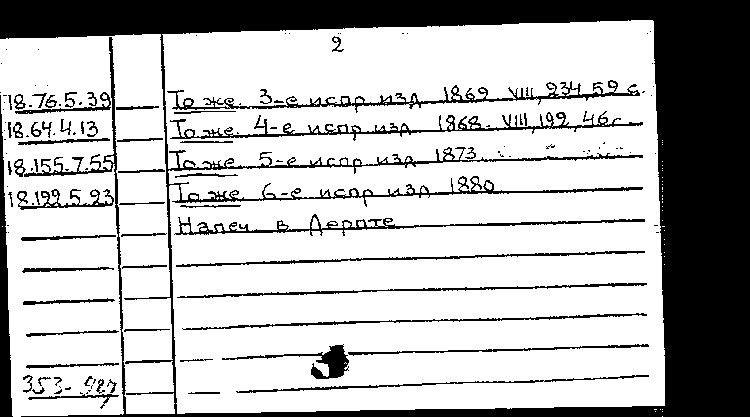 2
18.76.5.39 То же. 3-е испр изд 1869 VIII, 234, 59 с.
18.64.4.13 То же. 4-е испр изд 1868. VIII, 192, 46с
18.155.7.55 То же 5-е испр изд 1873.
18.192.5.23 То же 6-е испр изд 1880
Напеч в Дерпте
353-